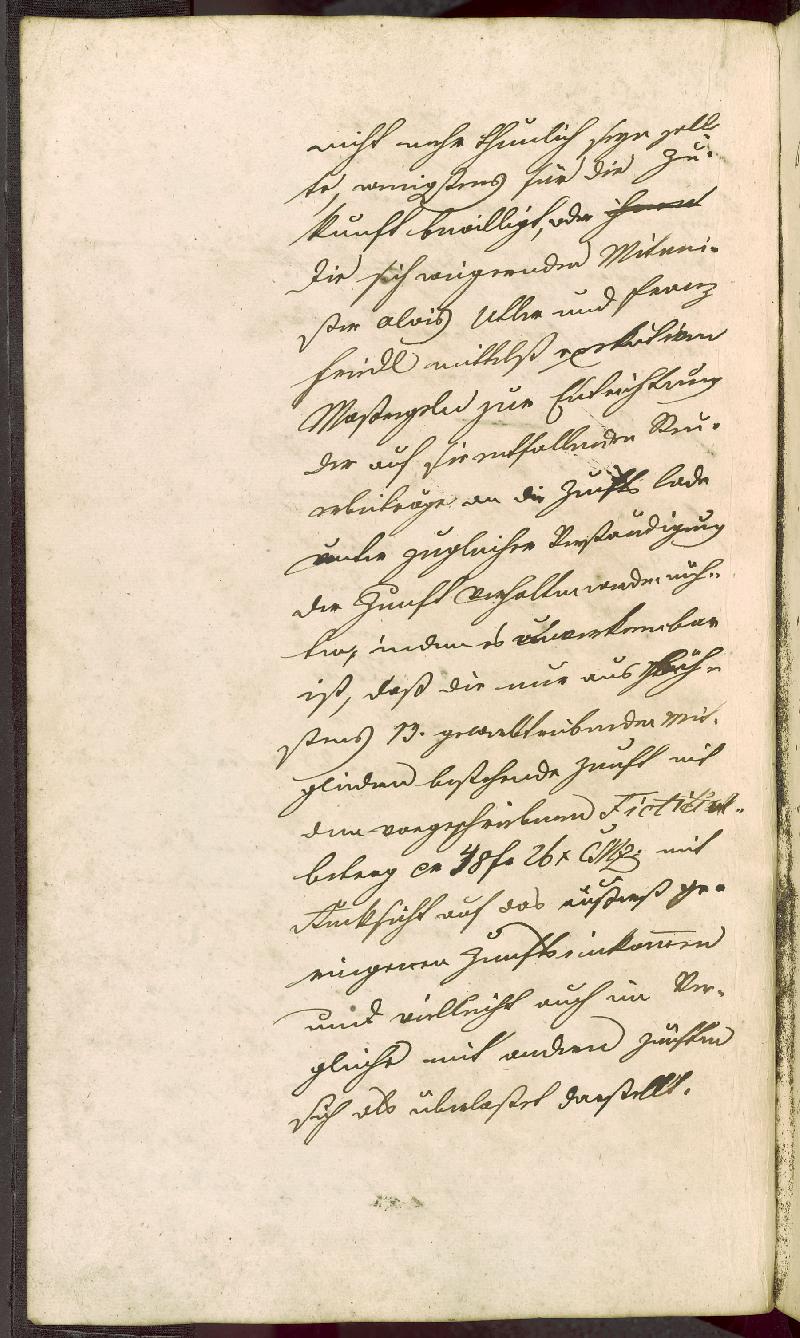 nicht mehr thunlich seyn soll-
te, wenigstens für die Zu-
kunft bewilligt, oder
die sich weigernden Mitmei-
ster Alois und Franz
Friedl mittelst exekutiven
Maßregeln zur Entrichtung
der auf sie entfallenden Steu-
erbeiträge an die Zunfts lade
unter zugleicher Verständigung
der Zunft verhalten werden möch-
ten, indem es unverkennbar
ist, daß die nur aus höch-
stens 13. gewerbtreibenden Mit-
gliedern bestehende Zunft mit
dem vorgeschriebenen
betrag pr 48 fr 26 x CMz: mit
Rücksicht auf das äußerst ge-
ringeren Zunftseinkommen
und vielleicht auch im Ver-
gleiche mit andern Zünften
sich als überlastet darstellt.